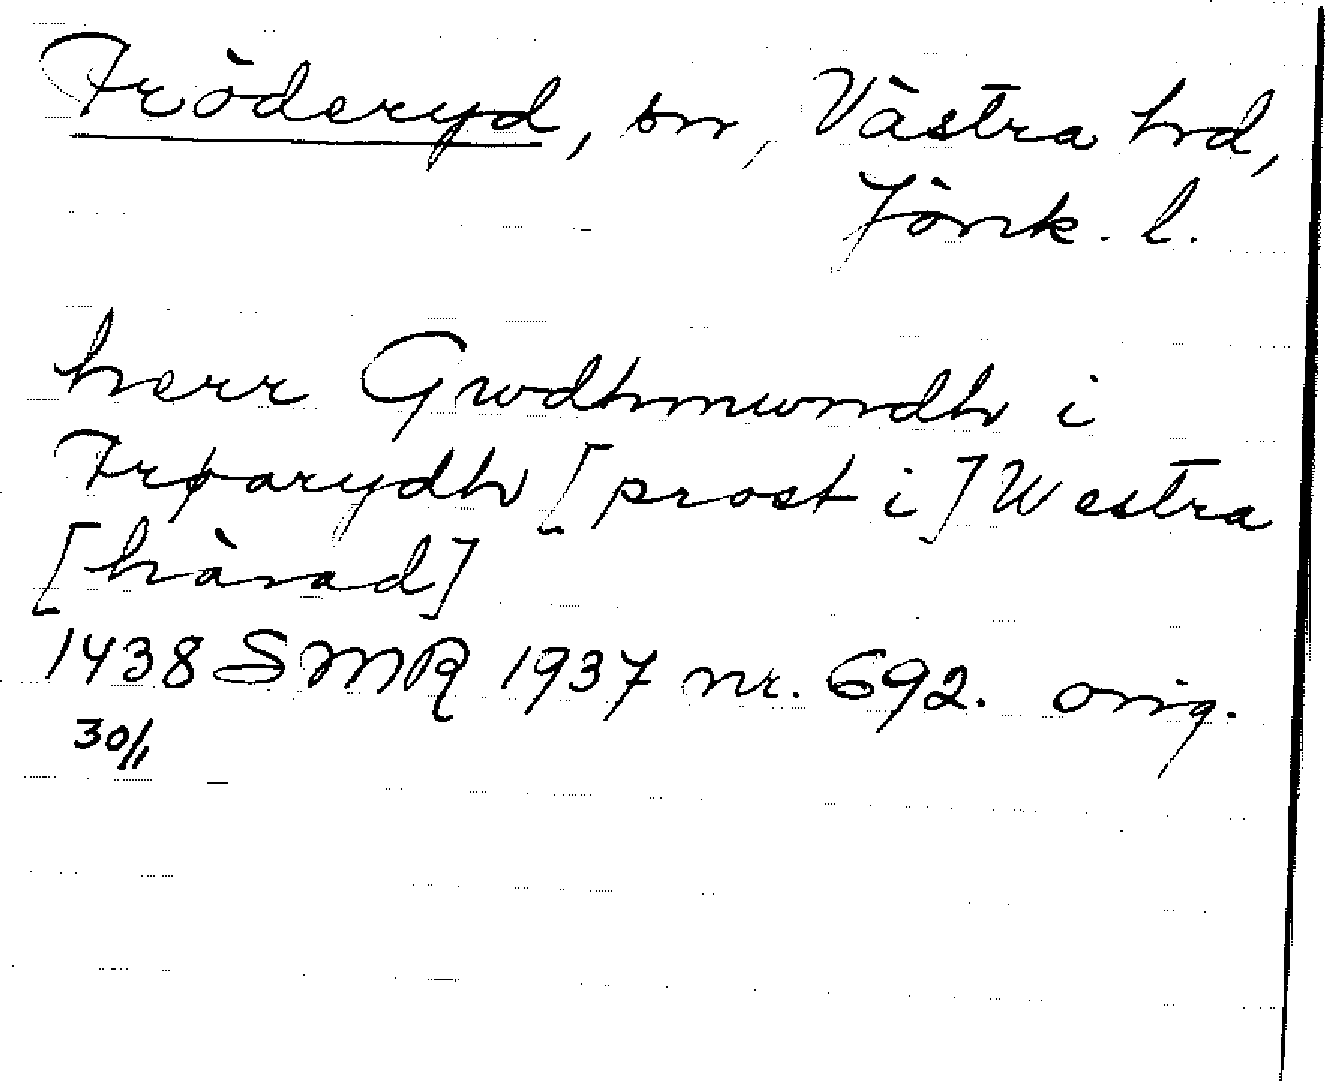 Fröderyd, sn, Västra hd,
Jönk. l.
herr Gwdhmwndh i
Frøarydh [prost i] Westra
[härad]
1438 SMR 1937 nr. 692. orig.
30/1